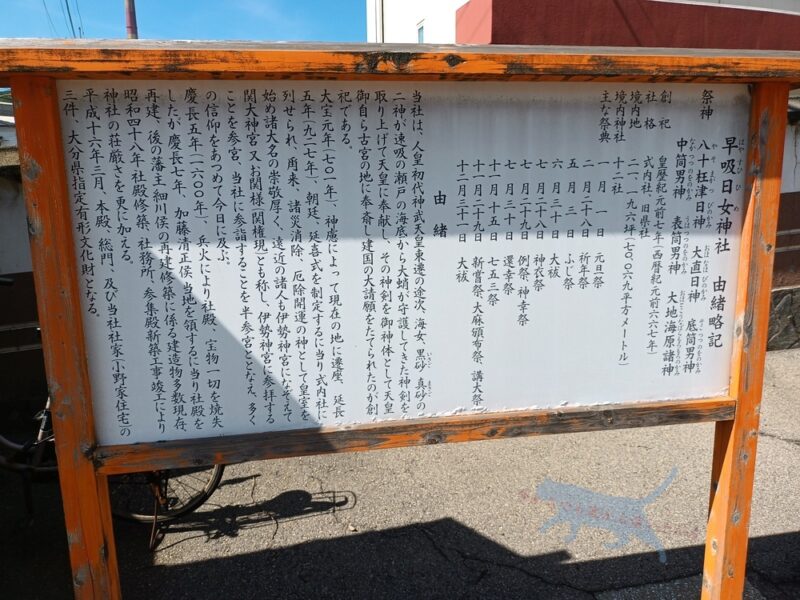 早吸日女神社　由緒略記
祭神　八十枉津日神　大直日神　底筒男神
中筒男神　表筒男神　大地海原諸神
創祀　皇暦紀元前七年(西暦紀元前六六七年)
社格　式内社、旧県社
境内地　二一、二九六坪(七〇、〇六九平方メートル)
境内神社　十二社
主な祭典　一月一日　元旦祭
二月二十八日　祈年祭
五月三日　ふじ祭
六月三十日　大祓
七月二十八日　神衣祭
七月二十九日　例祭、神幸祭
七月三十日　還幸祭
十一月十五日　七五三祭
十一月二十九日　新嘗祭、大麻頒布祭、講大祭
十二月三十一日　大祓
由緒
当社は、人皇初代神武天皇東遷の途次、海女、黒砂、真砂の
二神が速吸の瀬戸の海底から大蛸が守護してきた神剣を
取り上げて天皇に奉献し、その神剣を御神体として天皇
御自ら古宮の地に奉斎し建国の大請願をたてられたのが創
祀である。
大宝元年(七〇一年)、神慮によって現在の地に遷座、延長
五年(九二七年)、朝廷、延喜式を制定するに当り式内社に
列せられ、爾来、諸災消除、厄除開運の神として皇室を
始め諸大名の崇敬厚く、遠近の諸人も伊勢神宮になぞえて
関大神宮又お関様(関権現)とも称し、伊勢神宮に参拝する
ことを参宮、当社に参詣することを半参宮ととなえ、多く
の信仰をあつめて今日に及ぶ。
慶長五年(一六〇〇年)、兵火により社殿、宝物一切を焼失
したが、慶長七年、加藤清正侯当地を領するに当り社殿を
再建、後の藩主細川侯の再建修築に係る建造物多数現存、
昭和四十八年社殿修築、社務所、参集殿新築工事竣工により
神社の荘厳さを更に加える。
平成十六年三月、本殿、総門、及び当社社家(小野家住宅)の
三件、大分県指定有形文化財となる。